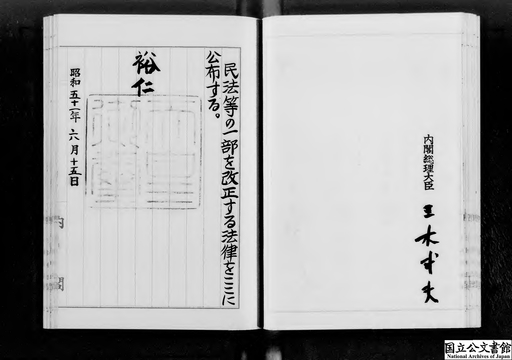 民法等の一部を改正する法律をここに
公布する。
裕仁
昭和五十一年六月十五日
内閣
内閣総理大臣
三木武夫
国立公文書館
National Archives of Japan